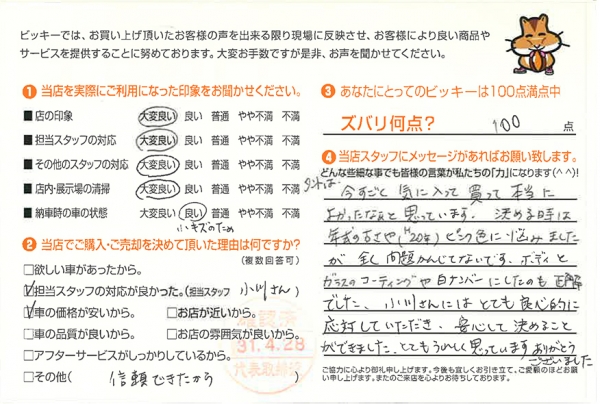 ビッキーでは、お買い上げ頂いたお客様の声を出来る限り現場に反映させ、お客様により良い商品や
サービスを提供することに努めております。大変お手数ですが是非、お声を聞かせください。
① 当店を実際にご利用になった印象をお聞かせください。
■ 店の印象 大変良い 良い 普通 やや不満 不満
■ 担当スタッフの対応 大変良い 良い 普通 やや不満 不満
■ その他のスタッフの対応 大変良い 良い 普通 やや不満 不満
■ 店内・展示場の清掃 大変良い 良い 普通 やや不満 不満
■ 納車時の車の状態 大変良い 良い 普通 やや不満 不満
小キズのため
② 当店でご購入・ご売却を決めて頂いた理由は何ですか?
(複数回答可)
□欲しい車があったから。
☑担当スタッフの対応が良かった。(担当スタッフ 小川さん)
☑車の価格が安いから。 □お店が近いから。
□車の品質が良いから。 □お店の雰囲気が良いから。
□アフターサービスがしっかりしているから。
□その他( 信頼できたから )
31.4.28
代表取締役
③ あなたにとってのビッキーは100点満点中
ズバリ何点? 100 点
④ 当店スタッフにメッセージがあればお願い致します。
どんな些細な事でも皆様の言葉が私たちの「力」になります(^^)!
タントは、
今すごく気に入って買って本当に
よかったなぁと思っています。決める時は
年式の古さや(H20年)ピンク色に悩みました
が全く問題かんじてないです。ボディと
ガラスのコーティングや白ナンバーにしたのも正解
でした。小川さんにはとても良心的に
応対していただき、安心して決めること
ができました。とてもうれしく思っています。ありがとう
ございました
ご協力に心より御礼申し上げます。今後も宜しくお引き立て、ご愛顧のほどお願い申し上げます。またのご来店を心よりお待ちしております。